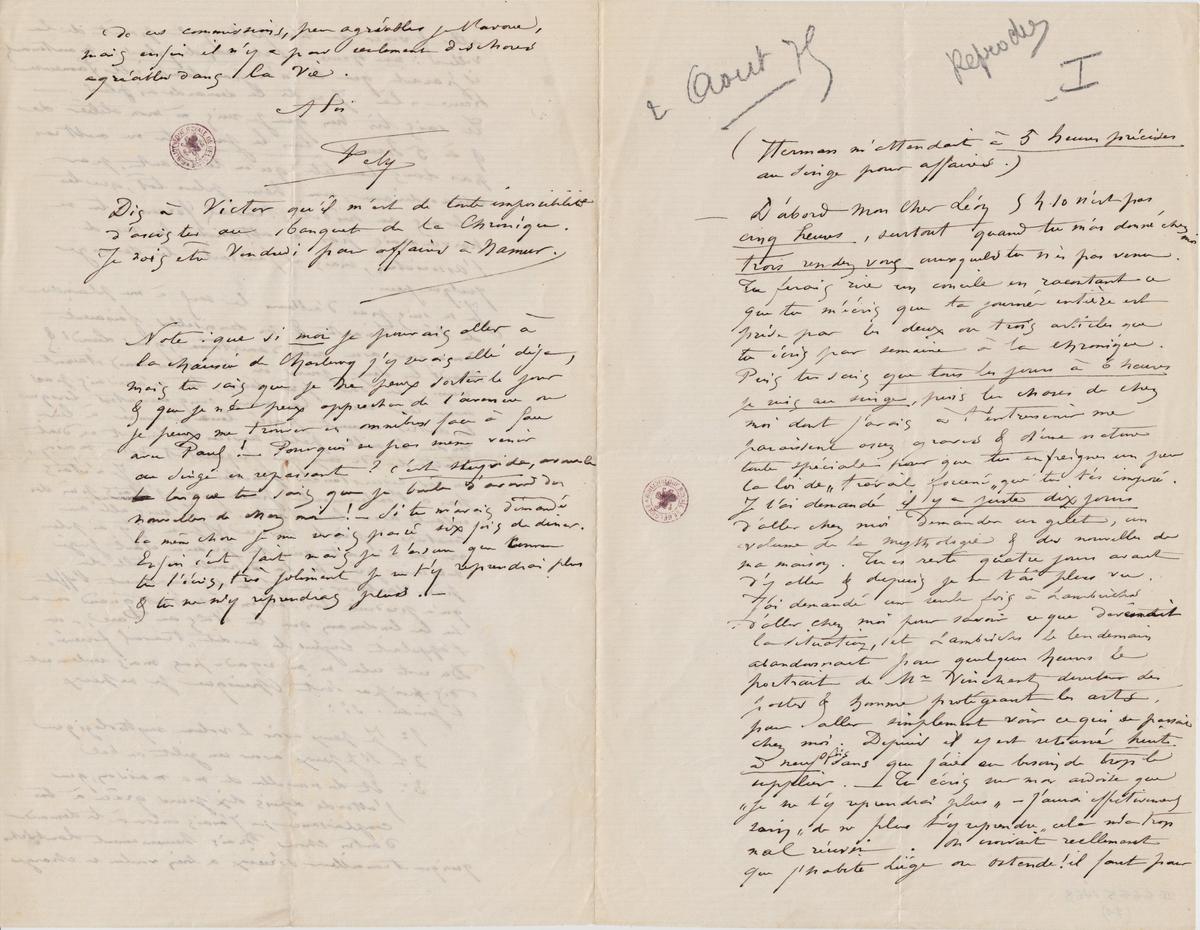 2 Aout 75
Reproduire
I
( Herman m'attendait à 5 heures précises
au singe pour affaires. )
— D'abord mon cher Léon 5 h 10 n'est pas
cinq heures, surtout quand tu m'as donné chez moi
trois rendez vous auxquels tu n'es pas venu.
Tu ferais rire un concile en racontant ce
que tu m'écris que ta journée entière est
prise par les deux ou trois articles que
tu écris par semaine à la chronique.
Puis tu sais que tous les jours à 6 heures
je suis au singe, puis les choses de chez
moi dont j'avais à t'entretenir me
paraissent assez graves & d'une nature
toute spéciale pour que tu enfreignes un peu
la loi de „travail forcené„ que tu t'es imposé.
Je t'ai demandé il y a juste dix jours
d'aller chez moi demander un gilet, un
volume de la mythologie & des nouvelles de
ma maison. Tu es resté quatre jours avant
d'y aller & depuis je ne t'ai plus vu.
J'ai demandé une seule fois à Lambrichs
d'aller chez moi pour savoir ce que devenait
la situation, et Lambrichs le lendemain
abandonnait pour quelques heures le
portrait de Mr Vinchent directeur des
postes & homme protégeant les arts,
pour aller simplement voir ce qui se passait
chez moi. Depuis il y est retourné huit
à neuf fois sans que j'aie eu besoin de trop le
supplier. — Tu écris sur mon ardoise que
„Je ne t'y reprendrai plus„ — J'aurai effectivement
soin „de ne plus t'y reprendre„ cela m'a trop
mal réussi. On croirait reellement
que j'habite Liège ou Ostende! il faut pour
de ces commissions, peu agréables je l'avoue,
mais enfin il n'y a pas seulement des choses
agréables dans la vie.
A toi
Fély
Dis à Victor qu'il m'est de toute impossibilité
d'assister au banquet de la Chronique.
Je dois être Vendredi pour affaires à Namur.
Note : que si moi je pouvais aller à
la chaussée de Charleroy j'y serais allé déjà,
mais tu sais que je ne peux sortir le jour
& que je ne peux approcher de l'avenue ou
je peux me trouver en omnibus face à face
avec Paul! — Pourquoi ne pas même venir
au singe en repassant ? c'est stupide,
lorsque tu sais que je brule d'avoir des
nouvelles de chez moi! — Si tu m'avais demandé
la même chose je me serais passé six fois de diner.
Enfin c'est fait mais je t'assure que comme
tu l'écris, très joliment je ne t'y reprendrai plus
& tu ne m'y reprendras plus. —